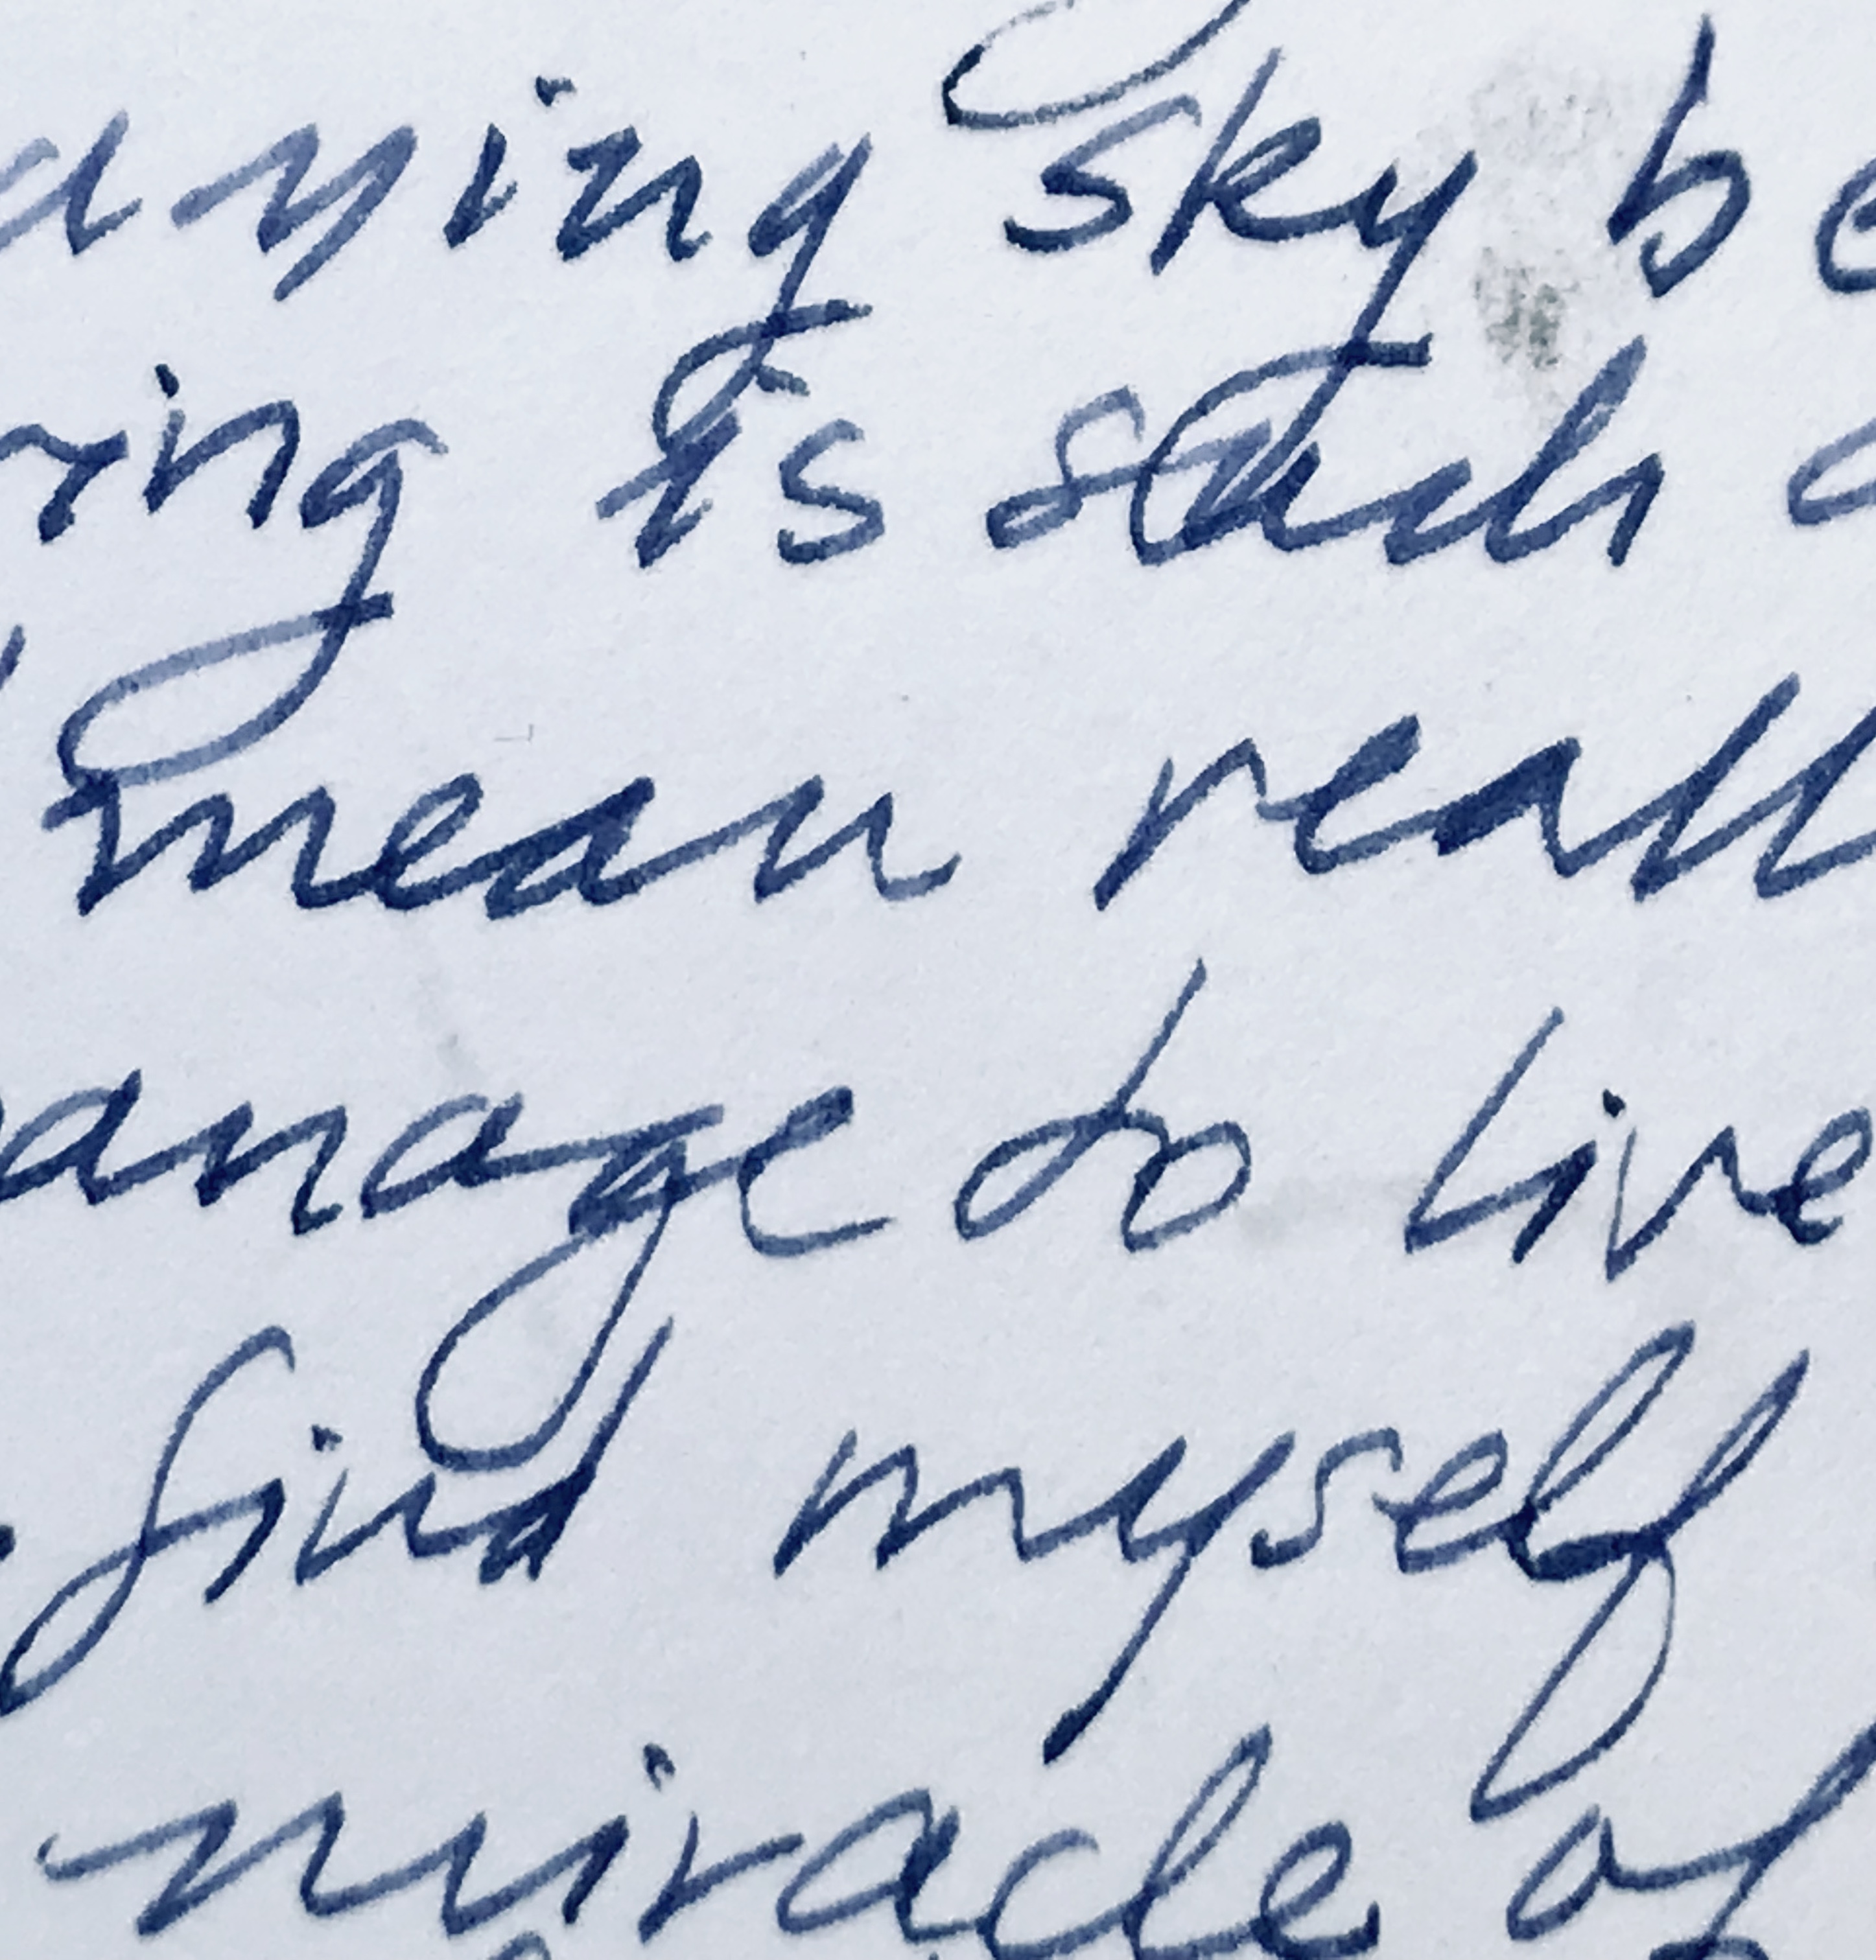 sky be
ring is such a
mean reall
anage to live
find myself
miracle of